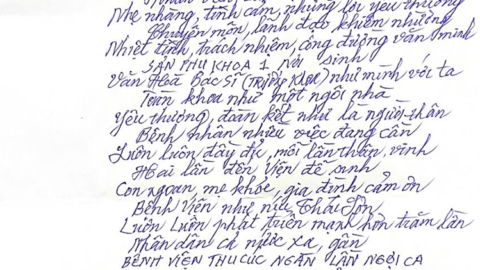 Nhẹ nhàng, tình cảm, những lời yêu thương
Chuyên môn, lãnh đạo khiêm nhường
Nhiệt tình, trách nhiệm, công đường văn minh
SẢN THU KHOA 1 Nơi sinh
Văn Hoá Bác Sĩ (Trưởng Khoa) như mình với ta
Toàn khoa như một ngôi nhà
Yêu thương, đoàn kết như là người thân
Bệnh nhân nhiều việc đang cần
Luôn luôn đầy đủ, mỗi lần thăm, vinh
Hai lần đến viện để sinh
Con ngoan, mẹ khỏe, gia đình cảm ơn
Bệnh viện như núi Thái Sơn
Luôn Luôn phát triển mạnh hơn trăm lần
Nhân dân cả nước xa, gần
BỆNH VIỆN THU CÚC NGÀN LẦN NGỢI CA